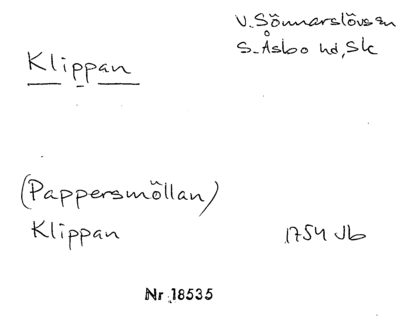 V. Sönnarslövs sn
S. Åsbo hd, Sk
Klippan
(Pappersmöllan)
Klippan 1754 Jb
Nr 18535